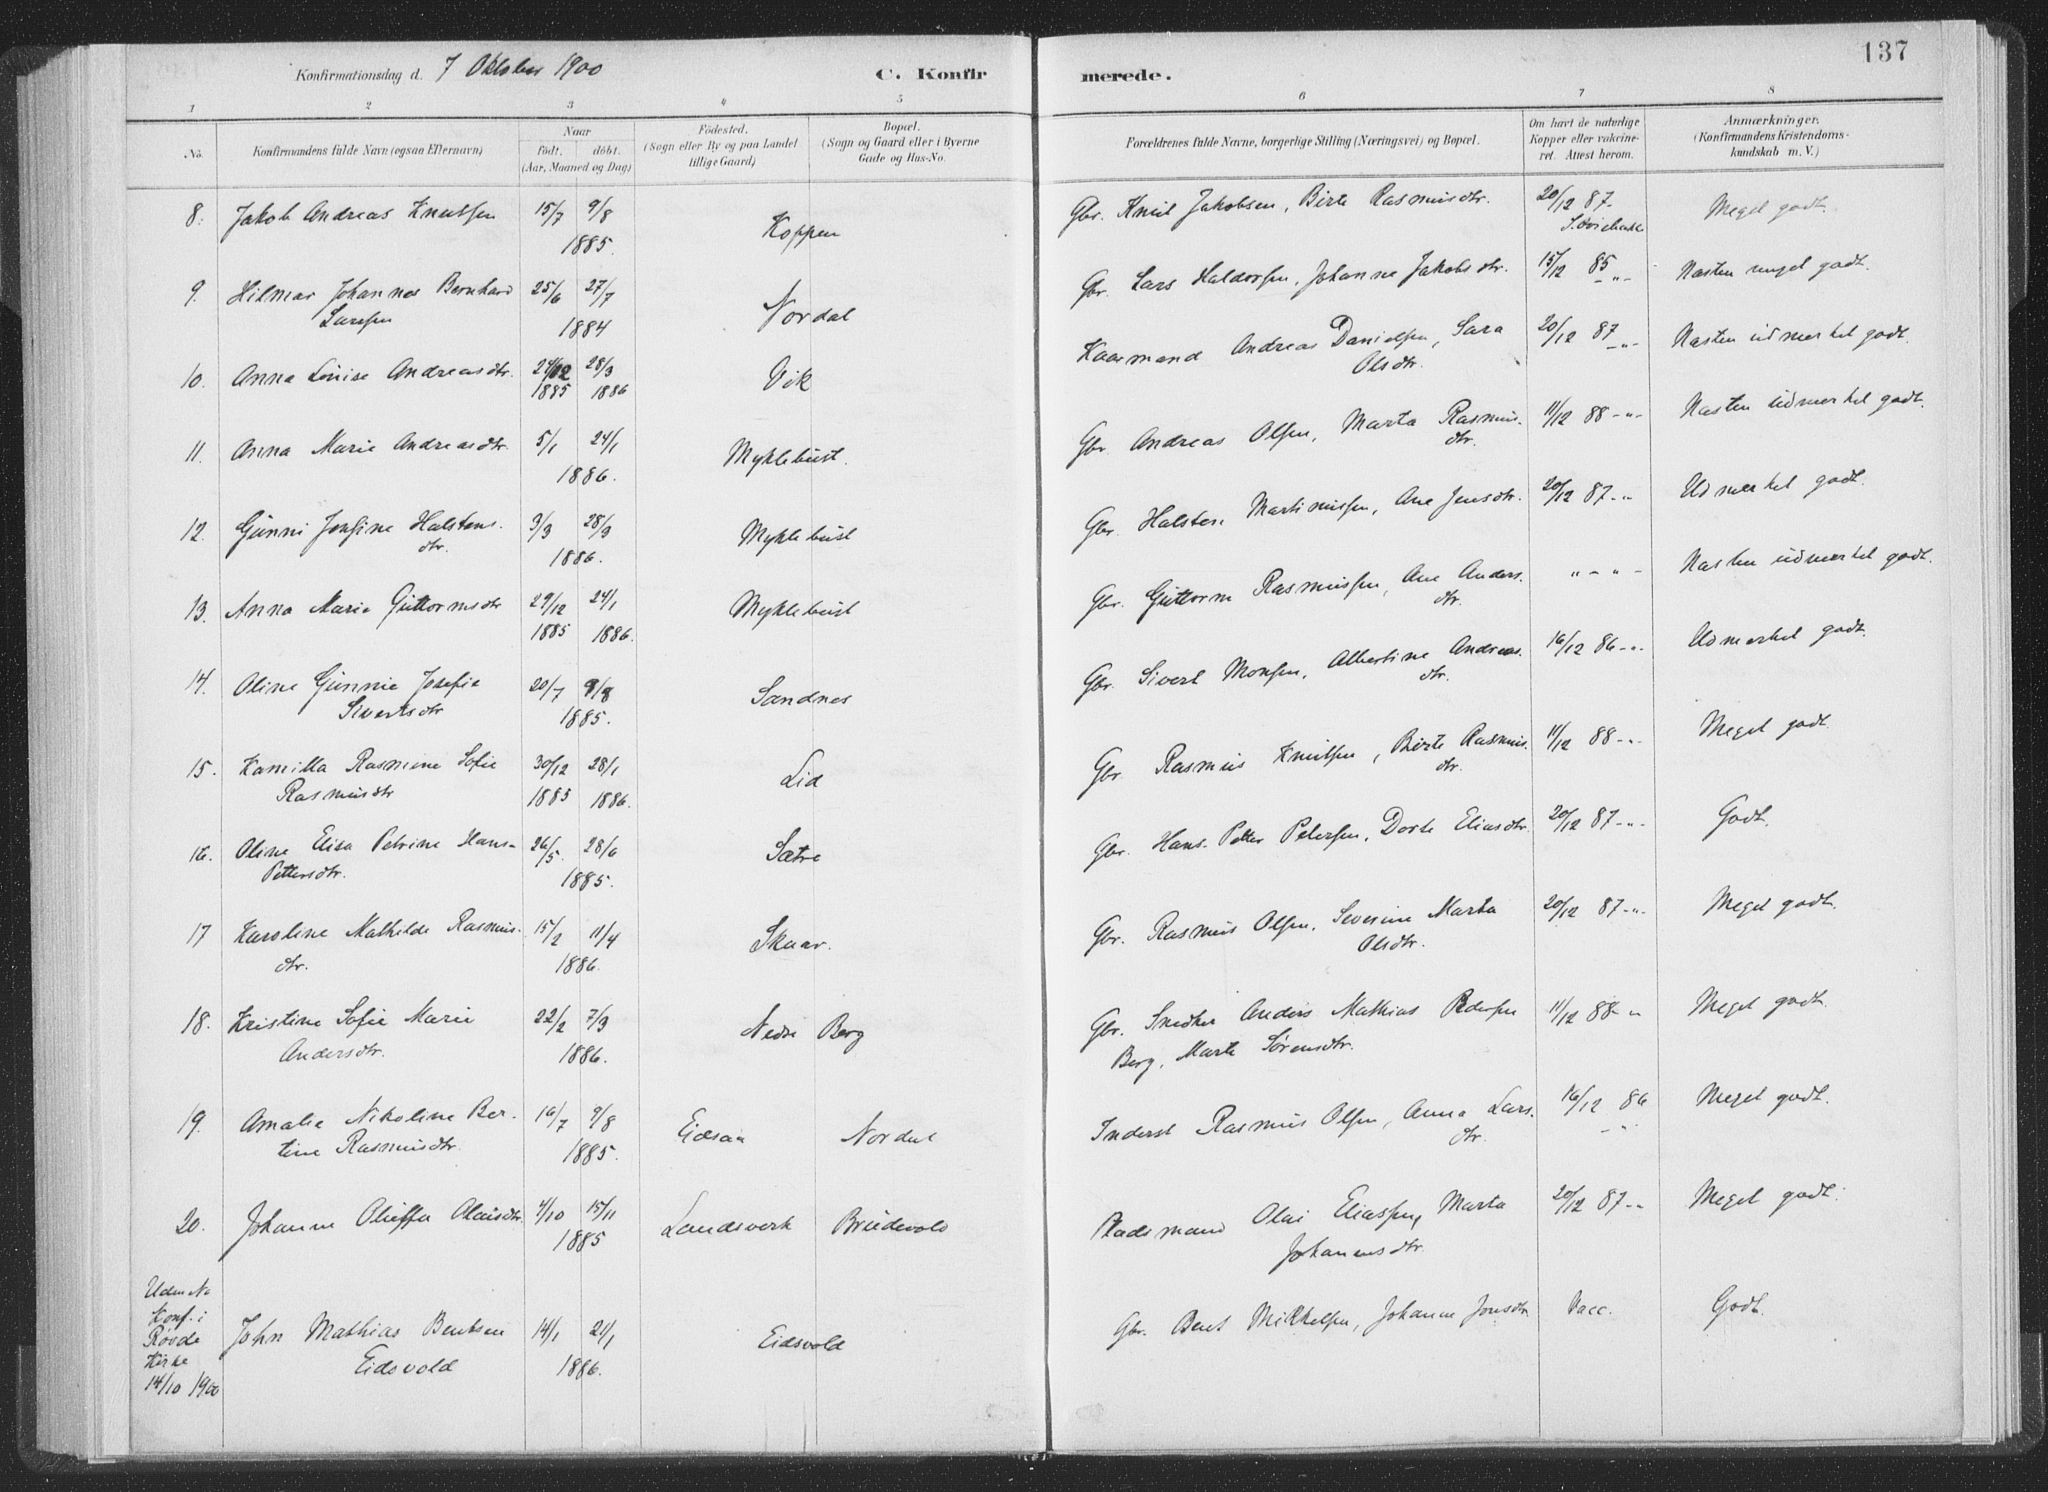 137
Konfirmationsdag d. 7 Oktober 1900 C. Konfirmerede.
1 2 3 4 5 6 7 8
No. Konfirmandens fulde Navn (ogsaa Efternavn) Naar Födt. döbt. (Aar, Maaned og Dag) Födested. (Sogn eller By og paa Landet tillige Gaard) Bopæl. (Sogn og Gaard eller i Byerne Gade og Hus-No. Forældrenes fulde Navne, borgerlige Stilling (Næringsvei) og Bopæl. Om havt de naturlige Kopper eller vakcineret. Attest herom. Anmærkninger. (Konfirmandens Kristendomskundskab m. V.)
8. Jakob Andreas Knutsen 15/7 9/8 1885. Koppen Gbr. Knut Jakobsen, Birte Rasmusdtr. 20/12 87 Meget godt.
9. Hilmar Johannes Bernhard Larssen 25/6 27/7 1884 Nordal Gbr. Lars Haldorsen, Johanne Jakobsdtr. 15/12 85 -"- Næsten meget godt.
10. Anna Louise Andreasdtr. 24/12 1885 28/3 1886 Vik Kaarmand Andreas Danielsen, Sara Olsdtr. 20/12 87 -"- Næsten udmerket godt.
11. Anna Marie Andreasdtr. 5/1 24/1 1886. Myklebust. Gbr. Andreas Olsen, Marta Rasmusdtr. 11/12 88 -"- Næsten udmerket godt.
12. Gunni Josefine Halstensdtr. 3/3 28/3 1886. Myklebust Gbr. Halsten Martinussen, Ane Jensdtr. 20/12 87 -"- Udmerket godt.
13. Anna Marie Guttormsdtr 29/12 1885 24/1 1886. Myklebust Gbr. Guttorm Rasmussen, Ane Andersdtr. " - " - Næsten udmerket godt.
14. Oline Gunnie Josefie Sivertsdtr 20/7 9/8 1885. Sandnes Gbr. Sivert Monsen, Albertine Andreasdtr. 16/12 86 -"- Udmerket godt.
15. Kamilla Rasmine Sofie Rasmusdtr 30/12 1885 28/1 1886. Lid Gbr. Rasmus Knutsen, Birte Rasmusdtr. 11/12 88 -"- Meget godt.
16. Oline Elisa Petrine Hans-Pettersdtr. 26/5. 28/6 1885. Sætre Gbr. Hans-Petter Petersen, Dorte Eliasdtr. 20/12 87 -"- Godt.
17 Karoline Mathilde Rasmusdtr. 15/2 11/4 1886. Skaar. Gbr. Rasmus Olsen, Severine Marta Olsdtr. 20/12 87 -"- Meget godt.
18. Kristine Sofie Marie Andersdtr. 22/2 7/3 1886. Nedre Berg Gbr. Snedker Anders Mathias Pedersen Berg, Marte Sørensdtr. 11/12 88 - " Meget godt.
19. Amalie Nikoline Bertine Rasmusdtr. 16/7 9/8 1885. Eidsaa Nordal Inderst Rasmus Olsen, Anna Larsdtr. 16/12 86 -"- Meget godt.
20. Johanne Olieffa Olaisdtr. 4/10 15/11 1885 Landsverk Brudevold Pladsmand Olai Eliassen, Marta Johannesdtr. 20/12 87 -" Meget godt.
Uden No Konf. i Rovde Kirke 14/10 1900 John Mathias Bentsen Eidsvold 14/1 21/1 1886. Eidsvold Gbr. Bent Mikkelsen, Johanne Jonsdtr Vacc. Godt.